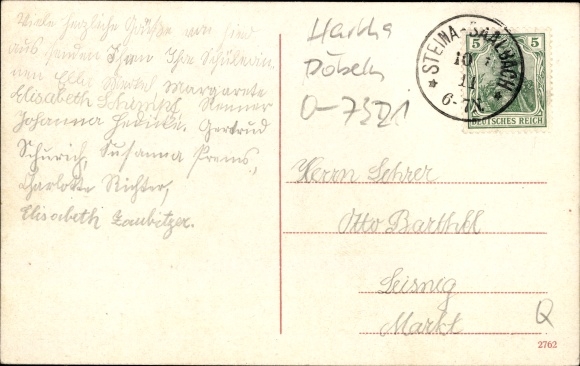 Viele herzliche Grüße von hier
aus senden Ihnen Ihre Schülerin-
nen Ella Margarete
Elisabeth Stumpf, Renner
Johanna Hedicke, Gertrud
Schurich, Susanna Prems,
Charlotte Richter,
Elisabeth Zaubitzer.
Hartha
Döbeln
O-7321
STEINA-SAALBACH
10
11
6-7N
5 5
DEUTSCHES REICH
Herrn Lehrer
Otto Barthel
Leisnig
Markt
Q
2762